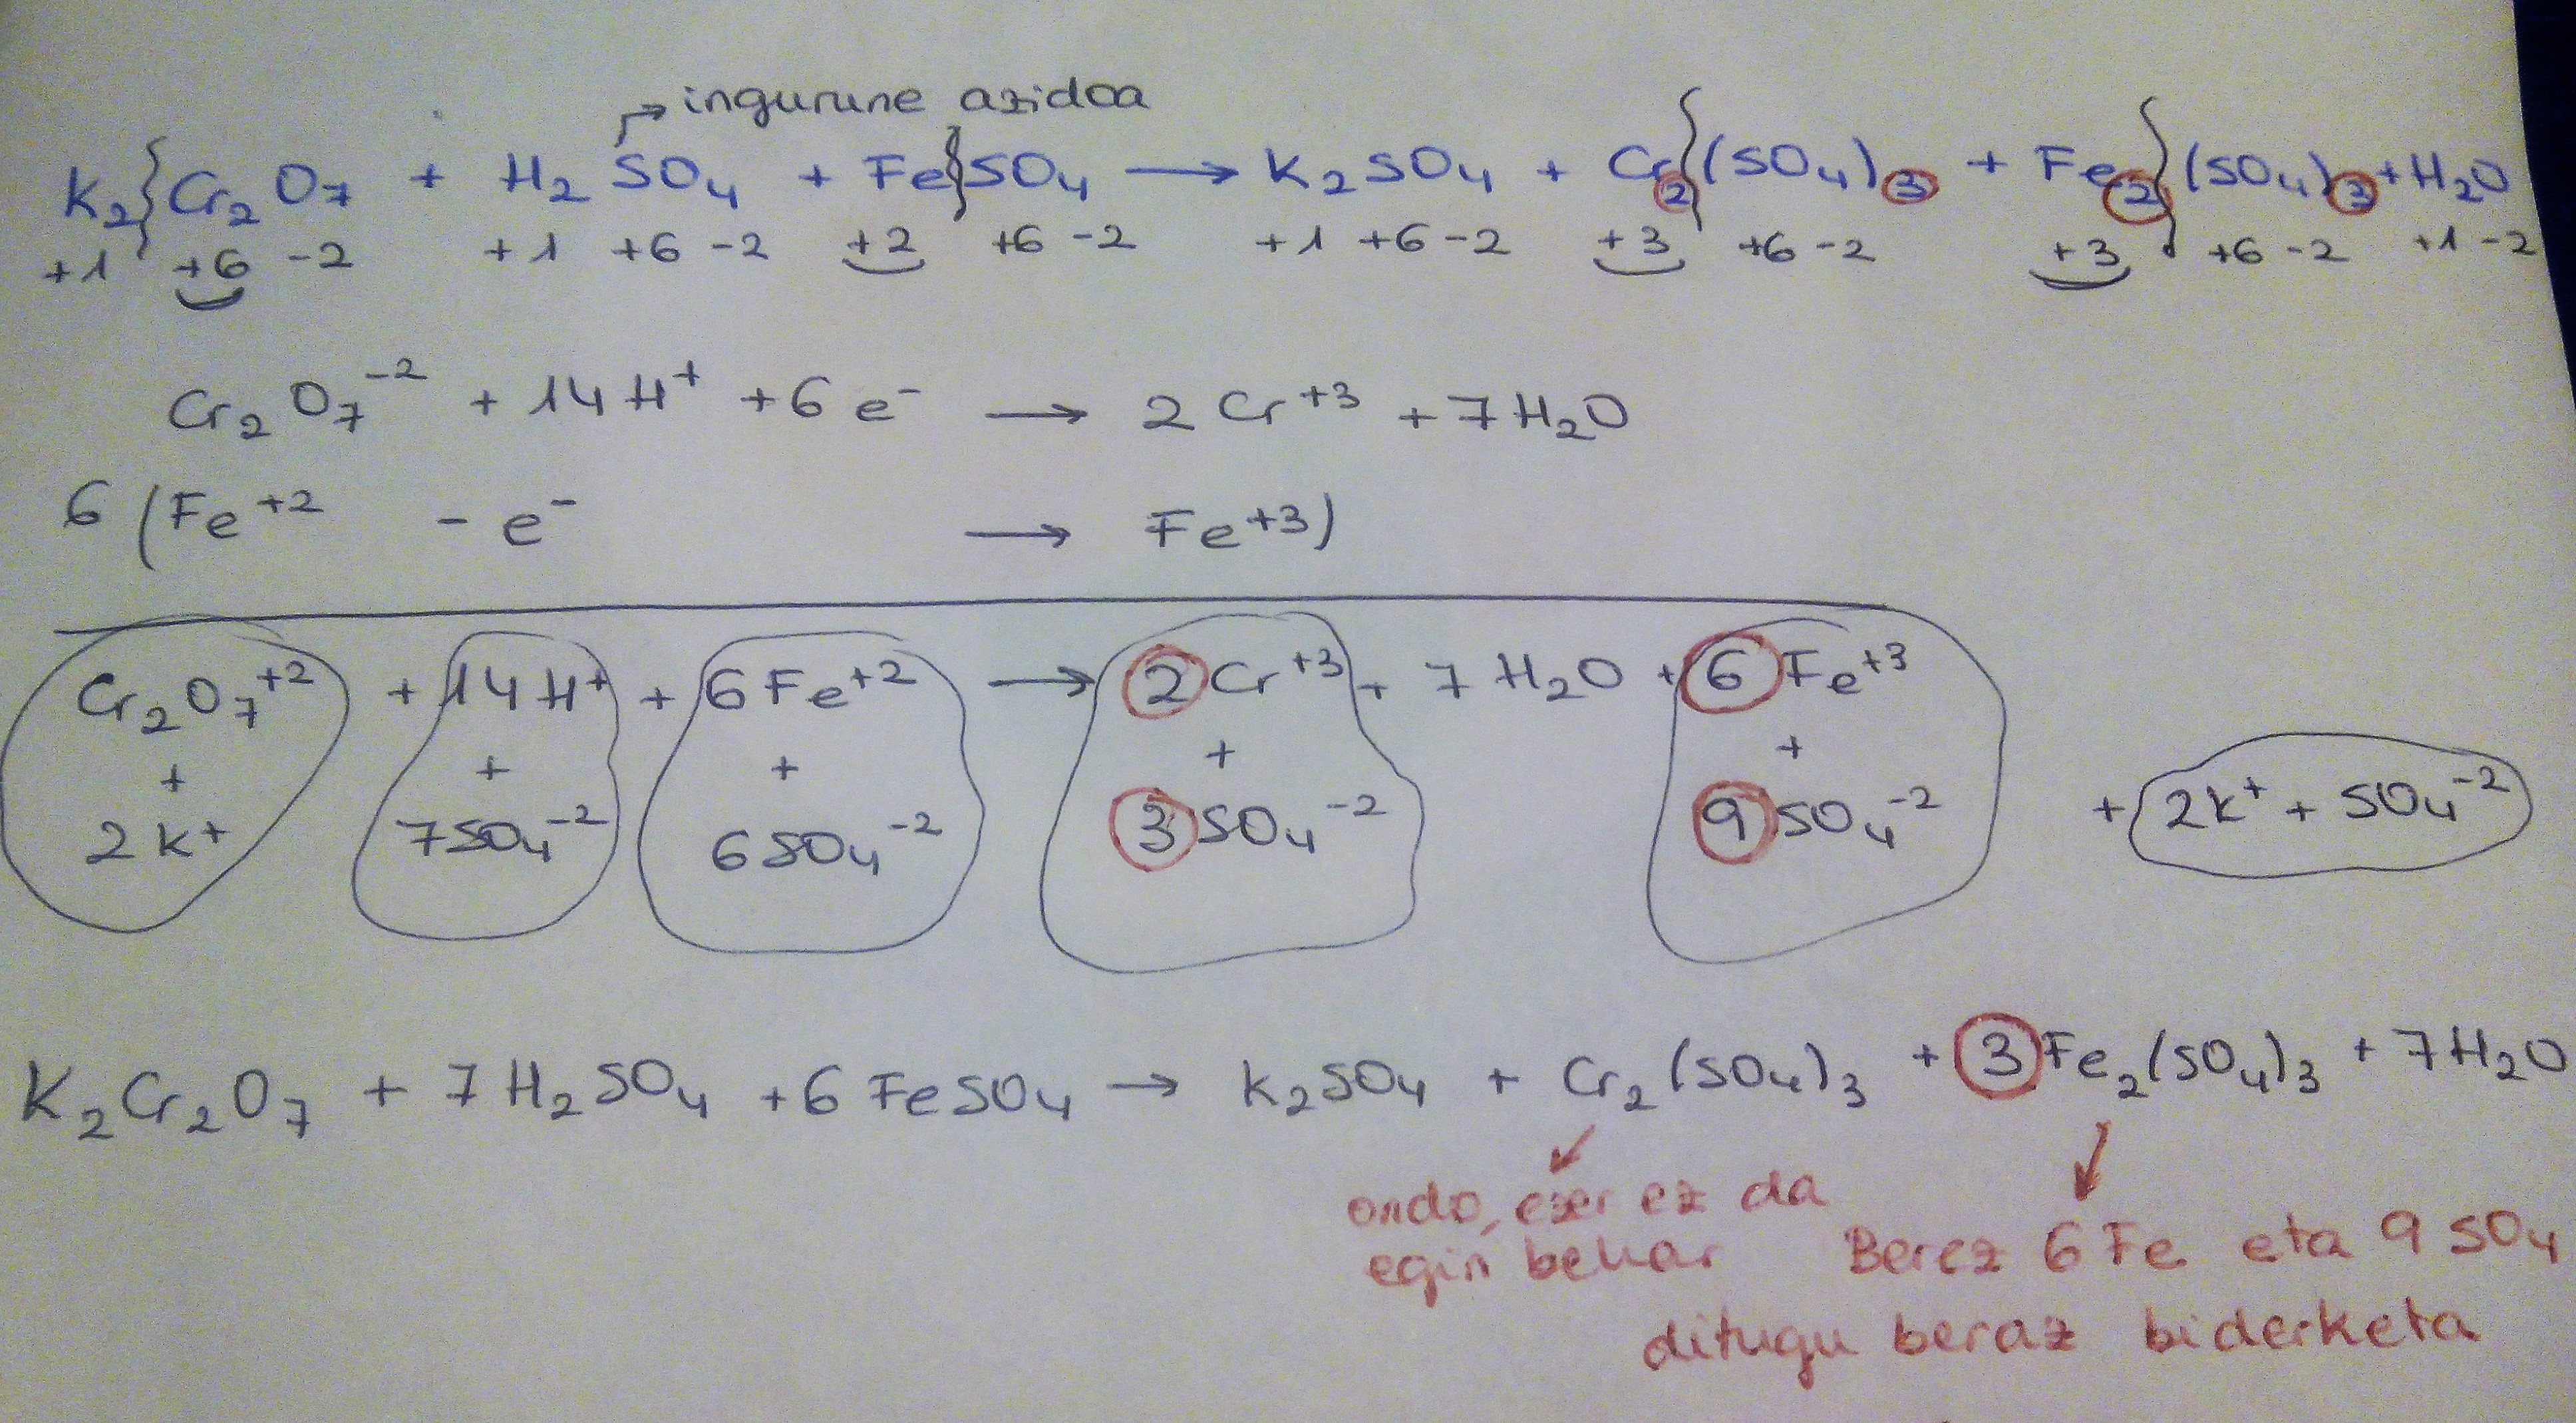 → ingurune azidoa
K₂ Cr₂O₇ + H₂SO₄ + FeSO₄ → K₂SO₄ + Cr₂(SO₄)₃ + Fe₂(SO₄)₃ + H₂O
+1 +6 -2 +1 +6 -2 +2 +6 -2 +1 +6 -2 +3 +6 -2 +3 +6 -2 +1 -2
Cr₂O₇⁻² + 14H⁺ + 6e⁻ → 2Cr⁺³ + 7H₂O
6 (Fe⁺² - e⁻ → Fe⁺³)
Cr₂O₇⁺² + 14H⁺ + 6Fe⁺² → 2Cr⁺³ + 7H₂O + 6Fe⁺³
+ + + + +
2K⁺ 7SO₄⁻² 6SO₄⁻² 3SO₄⁻² 9SO₄⁻² + 2K⁺ + SO₄⁻²
K₂Cr₂O₇ + 7H₂SO₄ + 6FeSO₄ → K₂SO₄ + Cr₂(SO₄)₃ + 3Fe₂(SO₄)₃ + 7H₂O
ondo, ezer ez da
egin behar
Berez 6 Fe eta 9 SO₄
ditugu beraz biderketa